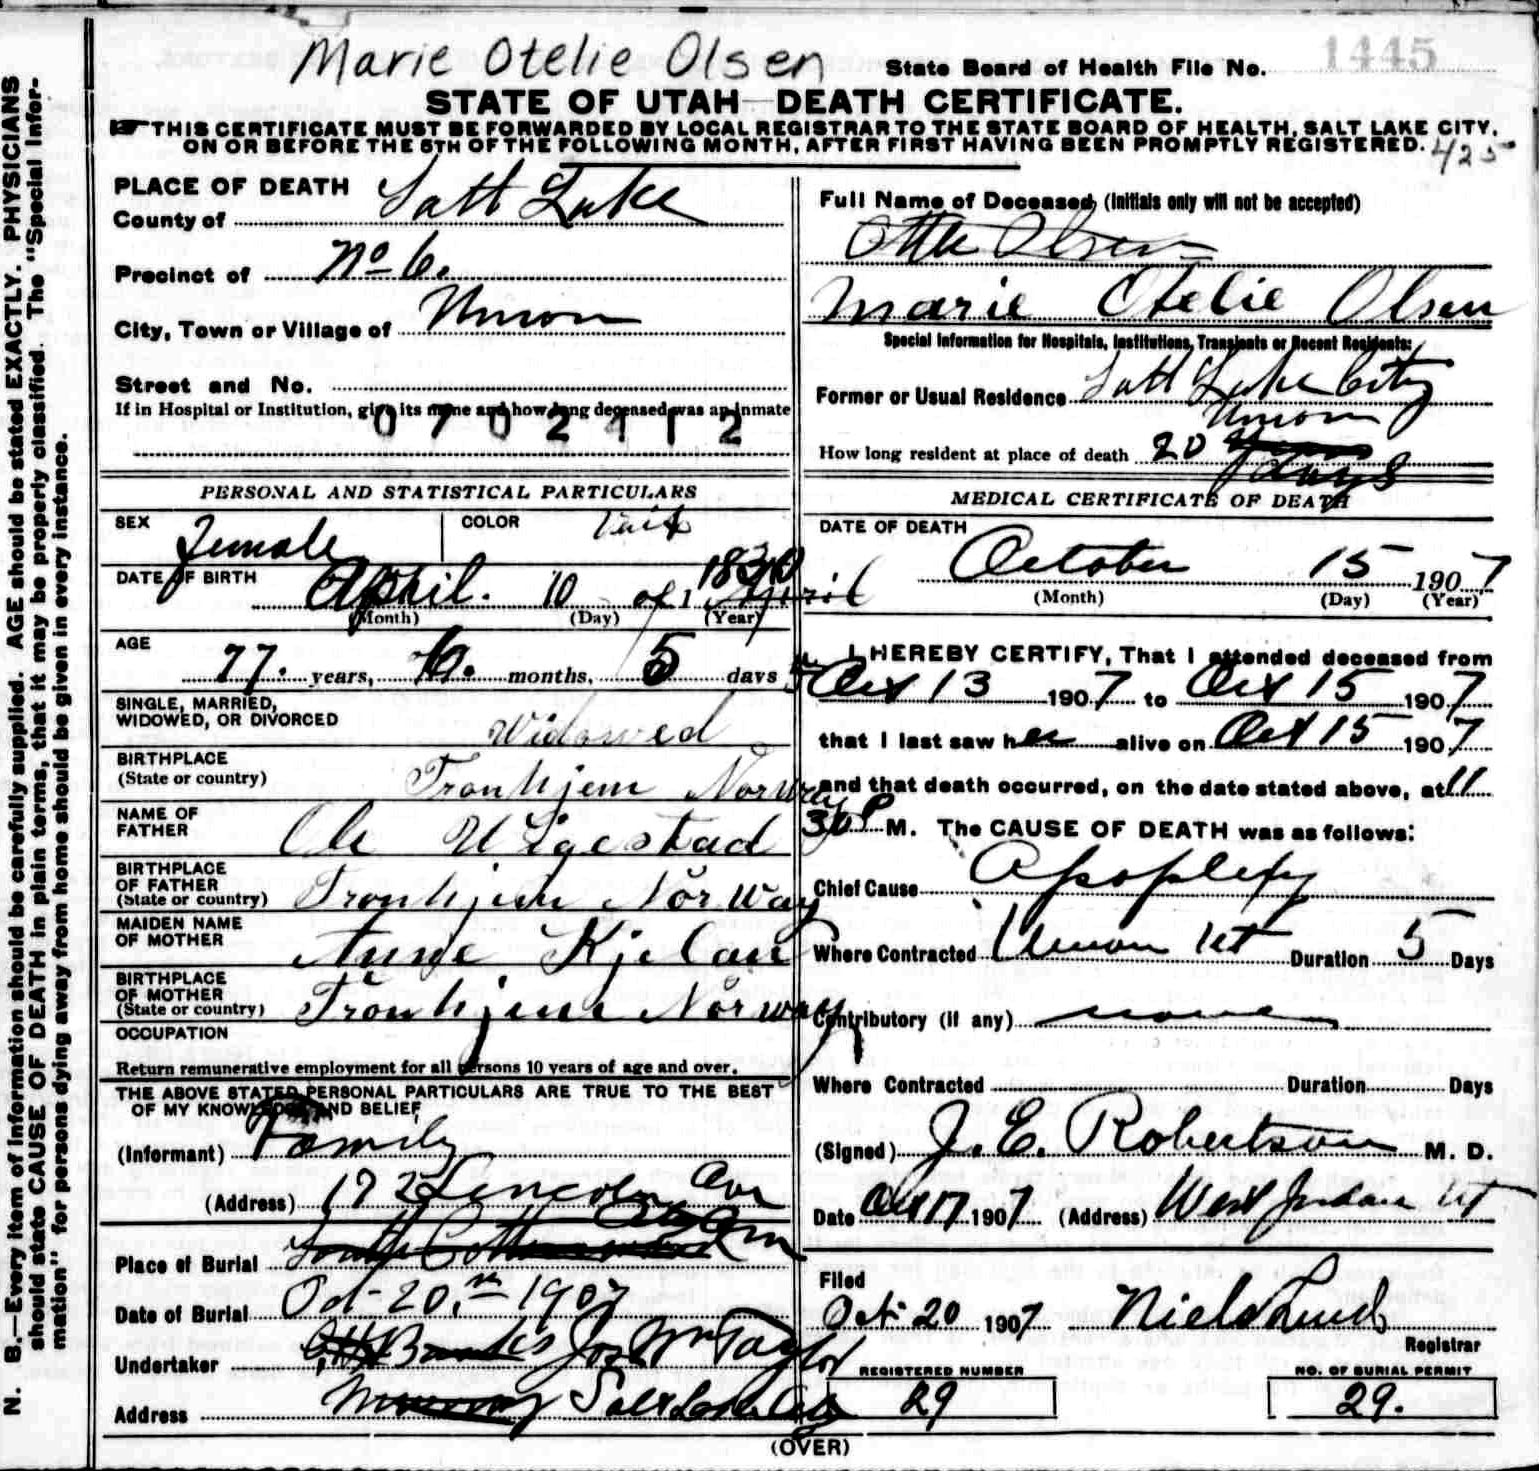 Marie Otelie Olsen
State Board of Health File No. 1445
STATE OF UTAH—DEATH CERTIFICATE.
THIS CERTIFICATE MUST BE FORWARDED BY LOCAL REGISTRAR TO THE STATE BOARD OF HEALTH, SALT LAKE CITY,
ON OR BEFORE THE 5TH OF THE FOLLOWING MONTH, AFTER FIRST HAVING BEEN PROMPTLY REGISTERED.
425
N. B.—Every item of information should be carefully supplied. AGE should be stated EXACTLY. PHYSICIANS
should state CAUSE OF DEATH in plain terms, that it may be properly classified. The "Special Infor-
mation" for persons dying away from home should be given in every instance.
PLACE OF DEATH
County of Salt Lake
Precinct of No 6.
City, Town or Village of Union
Street and No.
If in Hospital or Institution, give its name and how long deceased was an inmate
0702412
PERSONAL AND STATISTICAL PARTICULARS
SEX Female COLOR
DATE OF BIRTH April. 10 of 1830 April
(Month) (Day) (Year)
AGE
77. years, 6. months, 5 days
SINGLE, MARRIED,
WIDOWED, OR DIVORCED Widowed
BIRTHPLACE
(State or country) Tronhjem Norway
NAME OF
FATHER Ole
BIRTHPLACE
OF FATHER
(State or country) Tronhjem Norway
MAIDEN NAME
OF MOTHER Anne
BIRTHPLACE
OF MOTHER
(State or country) Tronhjem Norway
OCCUPATION
Return remunerative employment for all persons 10 years of age and over.
THE ABOVE STATED PERSONAL PARTICULARS ARE TRUE TO THE BEST
OF MY KNOWLEDGE AND BELIEF
(Informant) Family
(Address) 172 Lincoln Ave
Place of Burial South Cottonwood City Cem
Date of Burial Oct- 20.th 1907
Undertaker Jos Wm Taylor
Address Murray Salt Lake City
Full Name of Deceased, (Initials only will not be accepted)
Otte Olsen
Marie Otelie Olsen
Special Information for Hospitals, Institutions, Transients or Recent Residents:
Former or Usual Residence Salt Lake City
Union
How long resident at place of death 20 years
days
MEDICAL CERTIFICATE OF DEATH
DATE OF DEATH
October 15 1907
(Month) (Day) (Year)
I HEREBY CERTIFY, That I attended deceased from
Oct 13 1907 to Oct 15 1907
that I last saw her alive on Oct 15 1907
and that death occurred, on the date stated above, at 11
30 P M. The CAUSE OF DEATH was as follows:
Chief Cause Apoplexy
Where Contracted Union Ut Duration 5 Days
Contributory (if any) none
Where Contracted Duration Days
(Signed) J. E. Robertson M. D.
Date Oct 17 1907 (Address) West Jordan Ut
Filed
Oct- 20 1907 Niels Lind
Registrar
REGISTERED NUMBER
29
NO. OF BURIAL PERMIT
29.
(OVER)